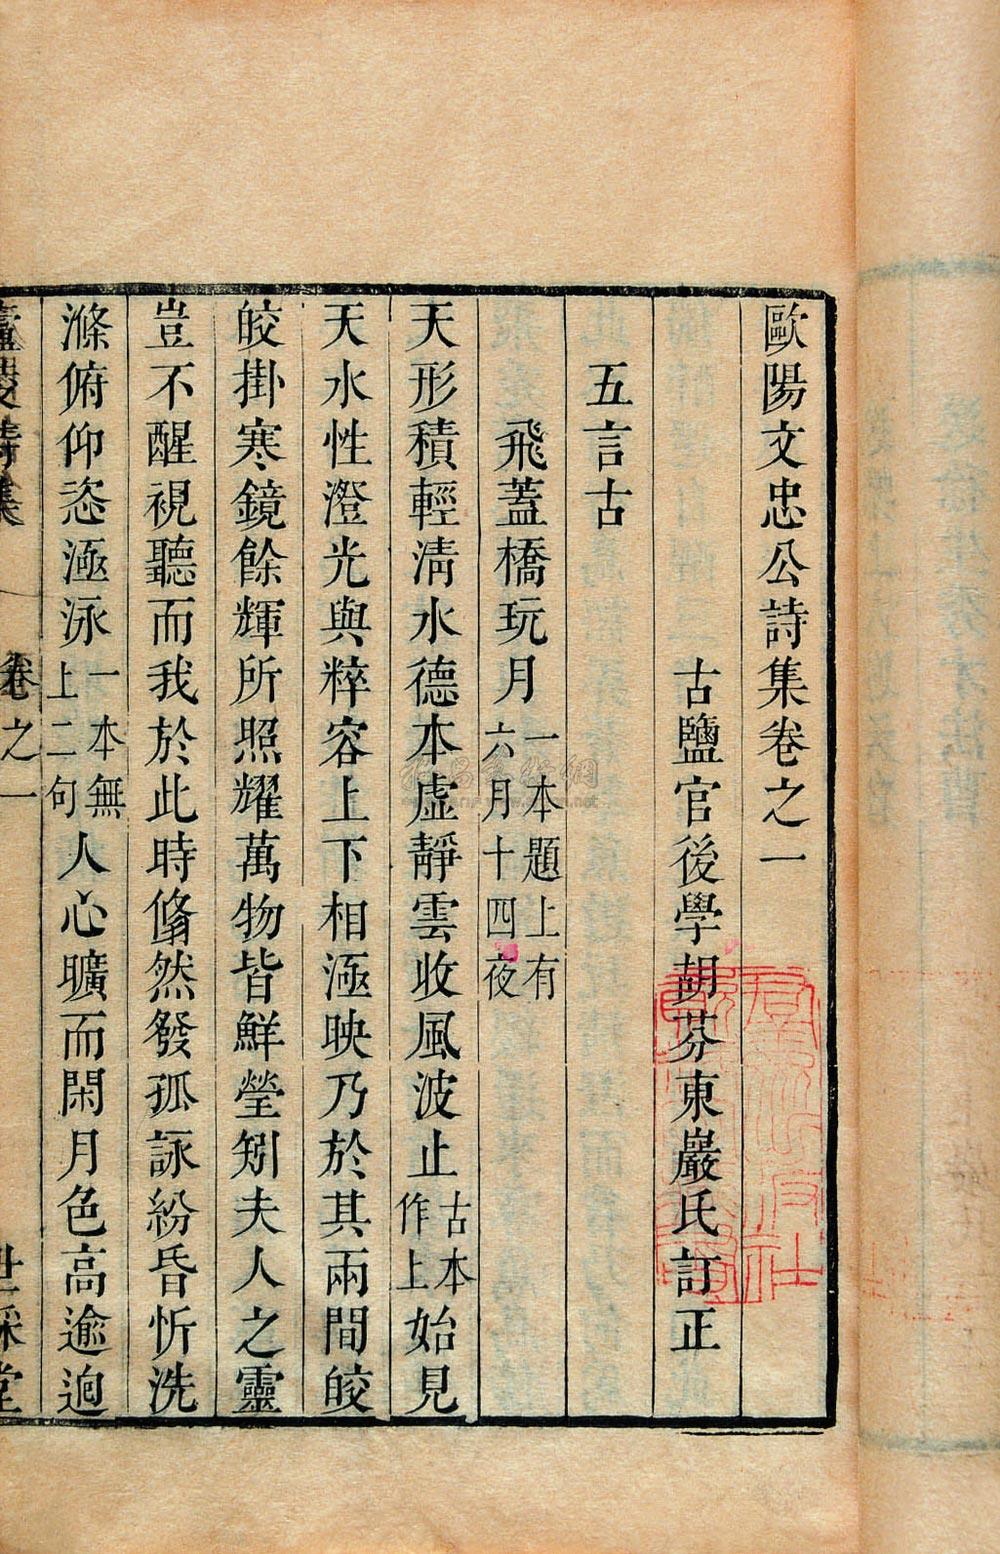 歐陽文忠公詩集卷之一
古鹽官後學胡芬東巖氏訂正
五言古
飛蓋橋玩月一本題上有六月十四夜
天形積輕淸水德本虛靜雲收風波止古本作上始見
天水性澄光與粹容上下相涵映乃於其兩間皎
皎掛寒鏡餘輝所照耀萬物皆鮮瑩矧夫人之靈
豈不醒視聽而我於此時翛然發孤詠紛昏忻洗
滌俯仰恣涵泳一本無上二句人心曠而閑月色高逾逈
卷之一
世綵堂